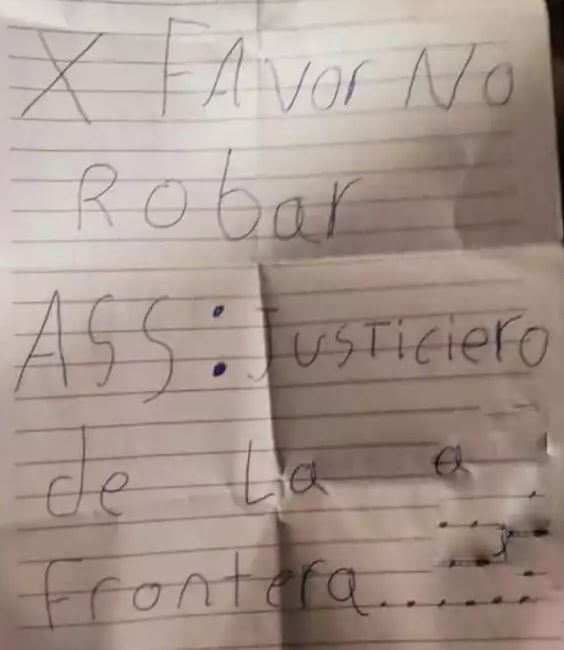 X FAvor No
Robar
ASS: Justiciero
de La a
Frontera.......